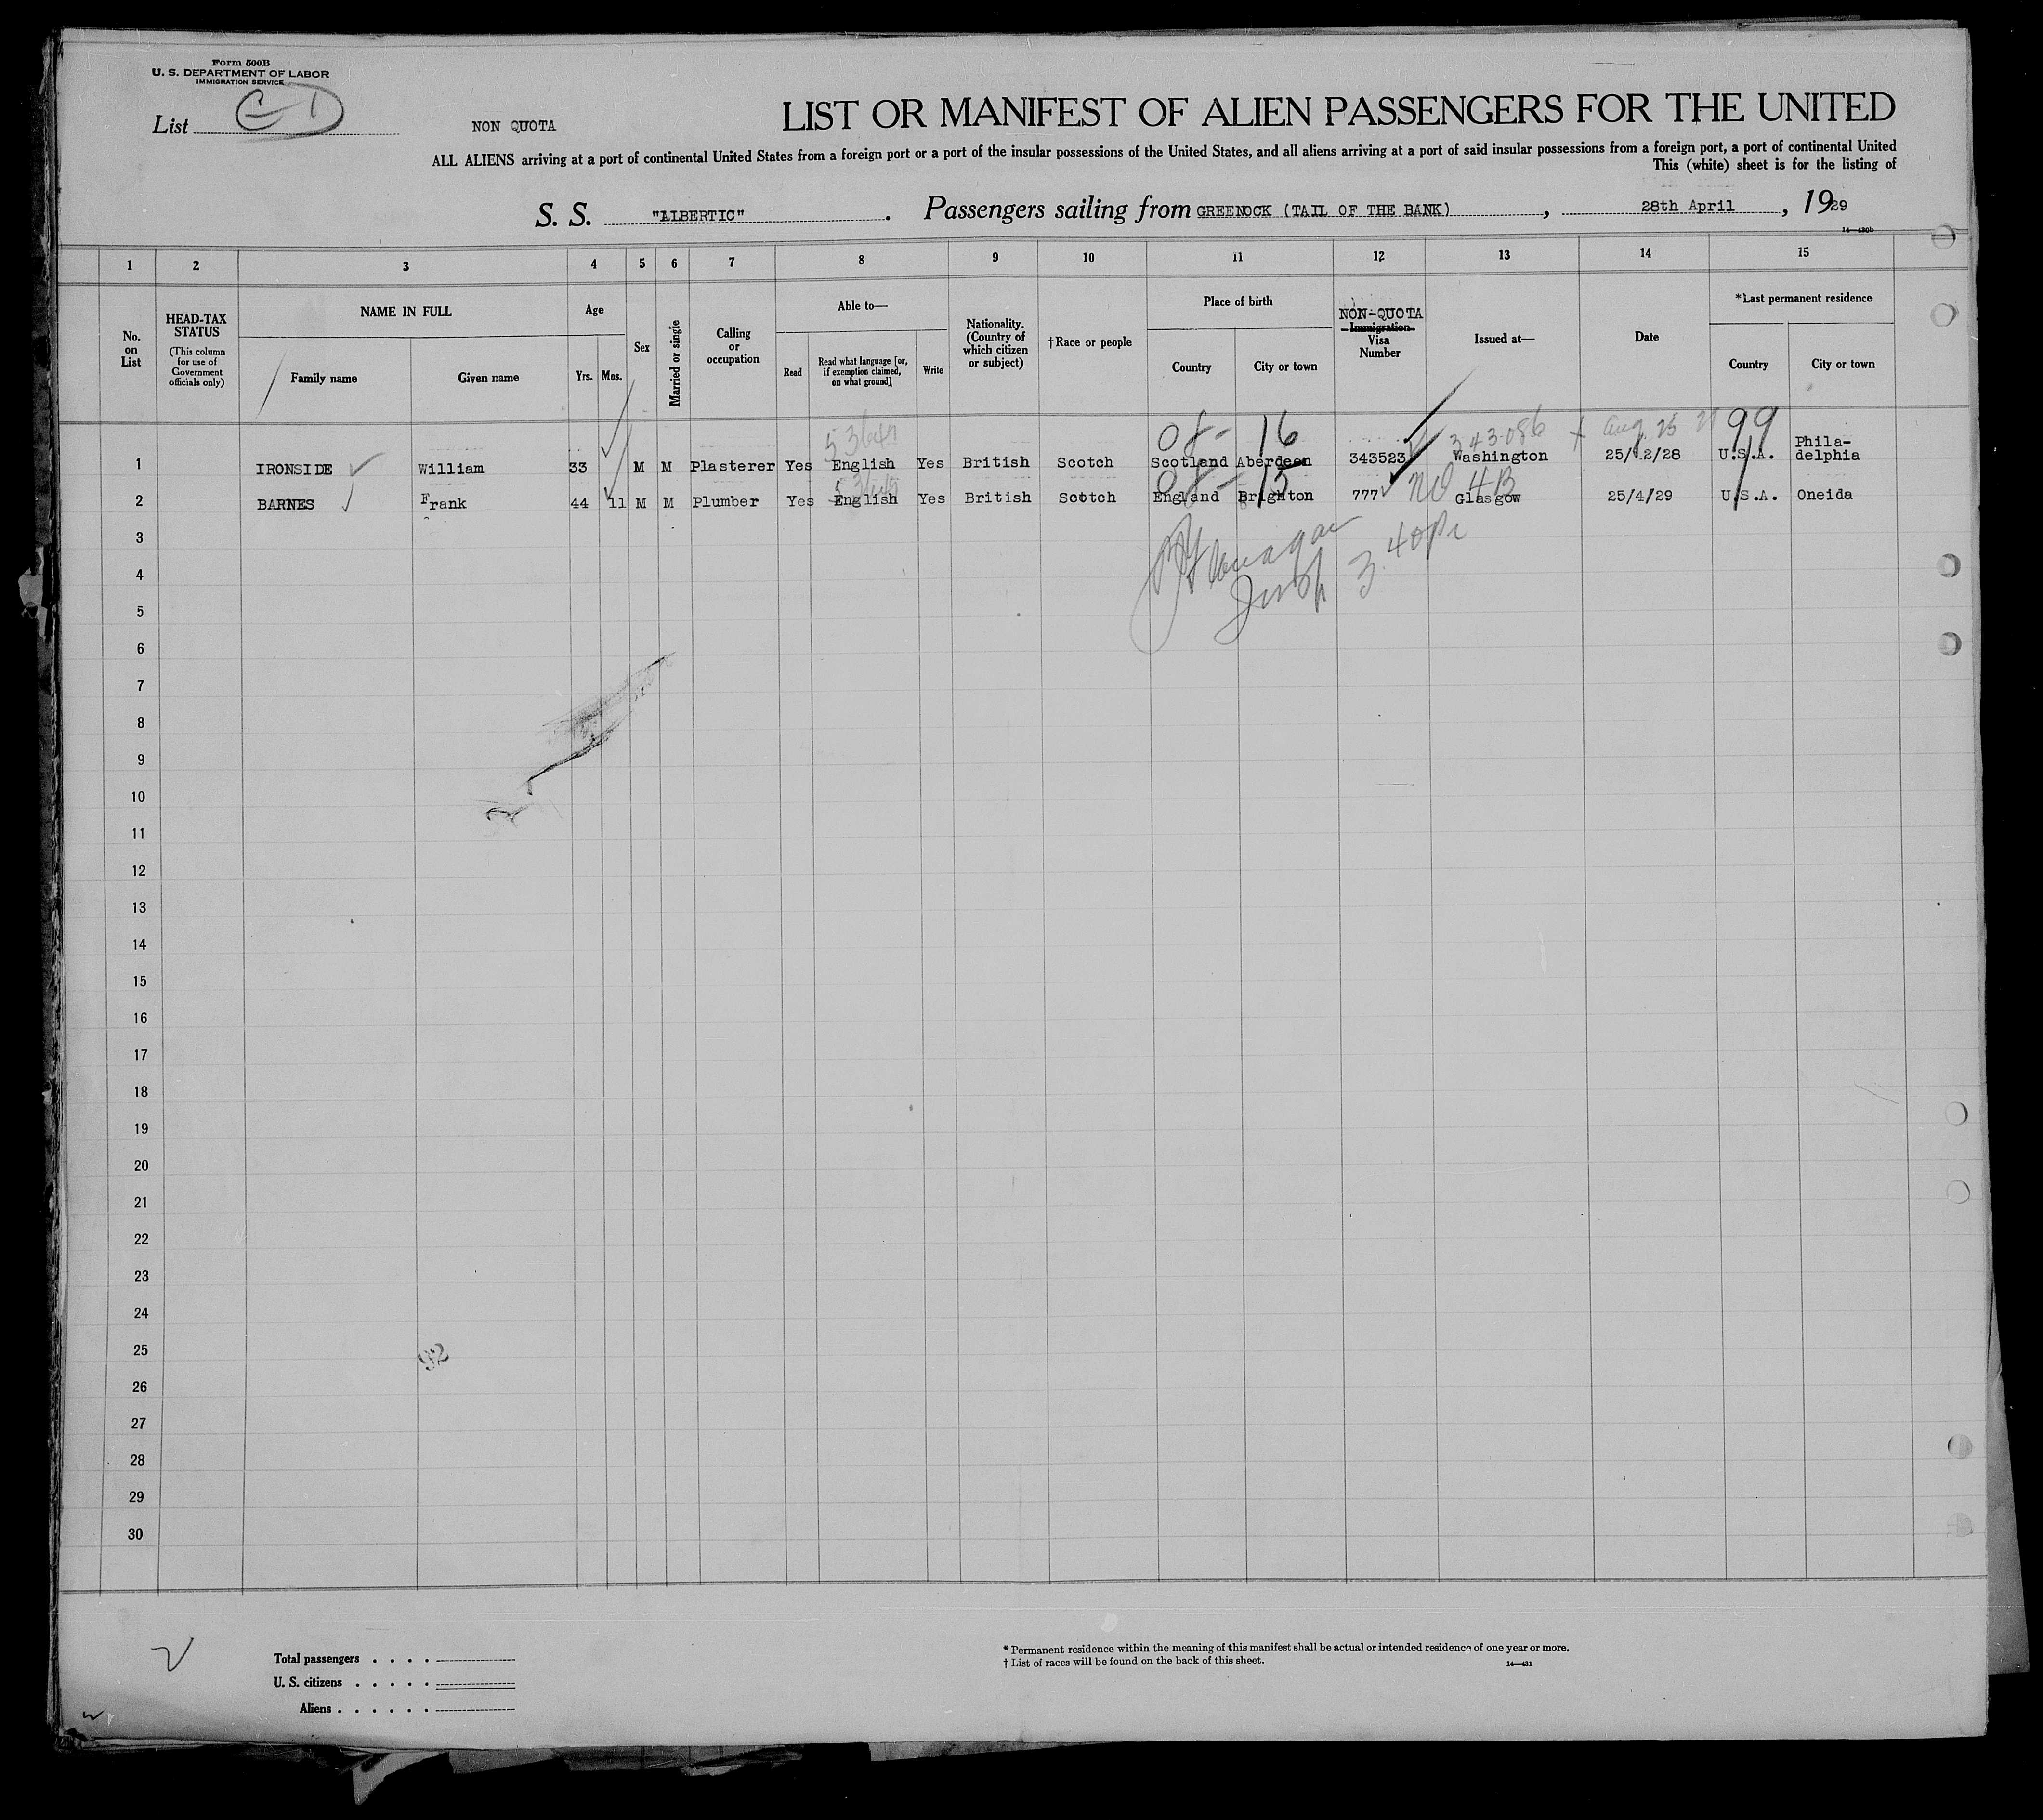 Form 500B
U. S. DEPARTMENT OF LABOR
IMMIGRATION SERVICE
List
NON QUOTA
LIST OR MANIFEST OF ALIEN PASSENGERS FOR THE UNITED
ALL ALIENS arriving at a port of continental United States from a foreign port or a port of the insular possessions of the United States, and all aliens arriving at a port of said insular possessions from a foreign port, a port of continental United
This (white) sheet is for the listing of
S. S. "ALBERTIC". Passengers sailing from GREENOCK (TAIL OF THE BANK), 28th April, 1929
14—430b
1 2 3 4 5 6 7 8 9 10 11 12 13 14 15
No. on List
HEAD-TAX STATUS
(This column for use of Government officials only)
NAME IN FULL
Family name
Given name
Age
Yrs. Mos.
Sex
Married or single
Calling or occupation
Able to—
Read
Read what language [or, if exemption claimed, on what ground]
Write
Nationality. (Country of which citizen or subject)
†Race or people
Place of birth
Country
City or town
NON-QUOTA
Immigration
Visa Number
Issued at—
Date
*Last permanent residence
Country
City or town
08- 16 343086 + Aug 25 99
1 IRONSIDE William 33 M M Plasterer Yes English Yes British Scotch Scotland Aberdeen 343523 Washington 25/2/28 U.S.A. Phila-
delphia
08- 15 NO 4B
2 BARNES Frank 44 11 M M Plumber Yes English Yes British Scotch England Brighton 777 Glasgow 25/4/29 U.S.A. Oneida
3
4
3.40
5
6
7
8
9
10
11
12
13
14
15
16
17
18
19
20
21
22
23
24
25
26
27
28
29
30
Total passengers . . . .
U. S. citizens . . . . .
Aliens . . . . . .
* Permanent residence within the meaning of this manifest shall be actual or intended residence of one year or more.
† List of races will be found on the back of this sheet.
14—431